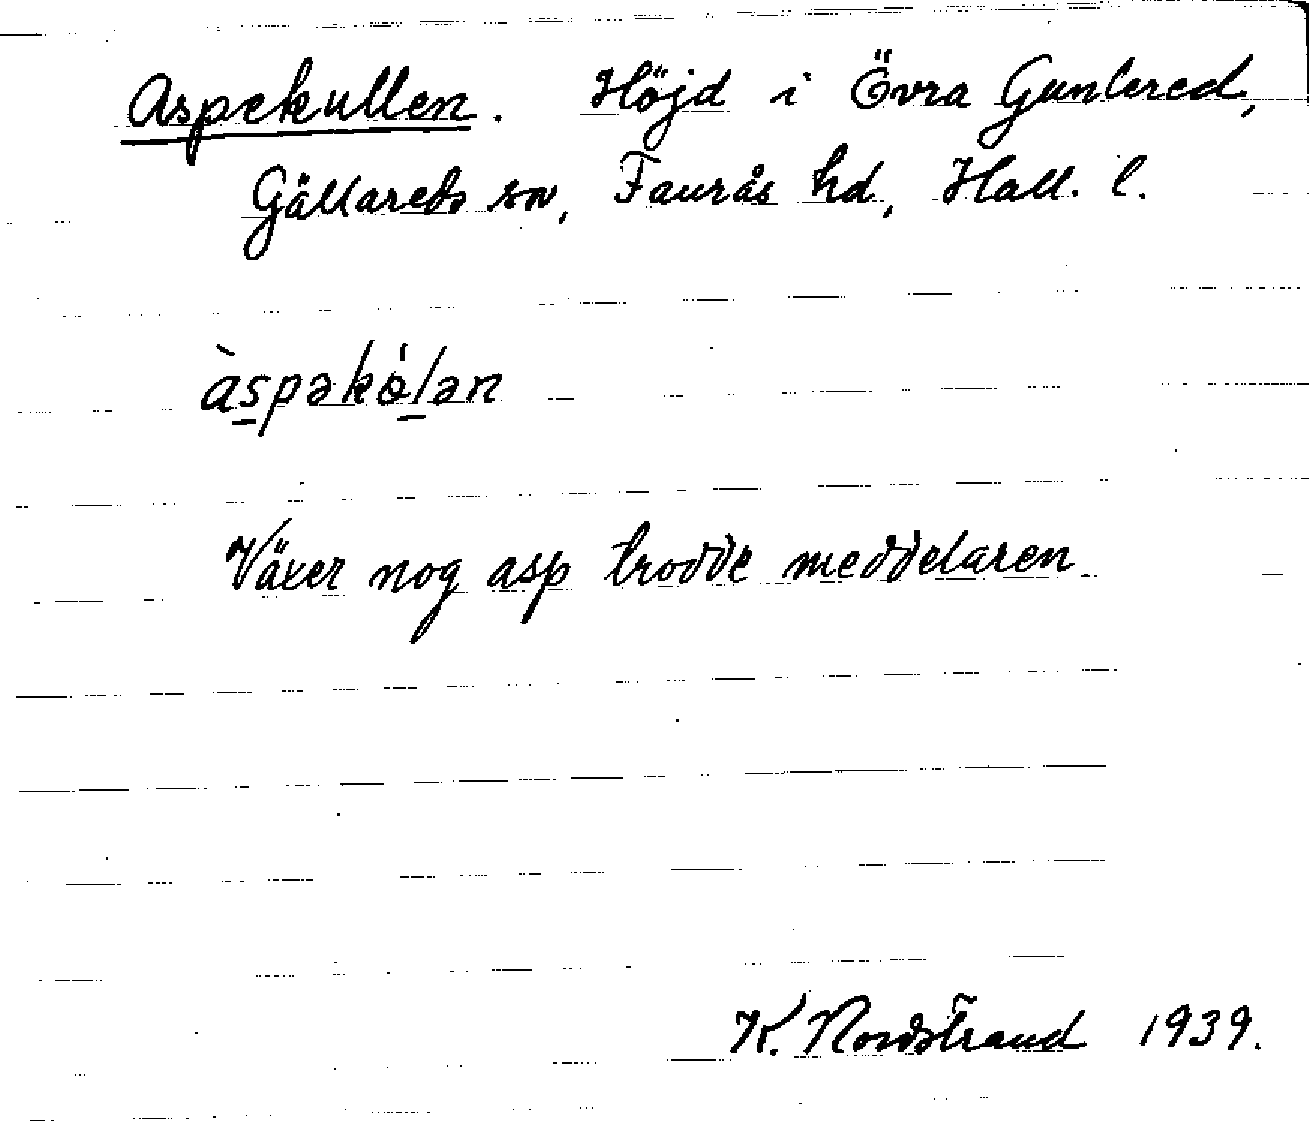 Aspekullen. Höjd i Övra Guntered,
Gällareds sn, Faurås hd, Hall. l.
àspəkɵ́lən
Växer nog asp trodde meddelaren
K. Nordstrand 1939.